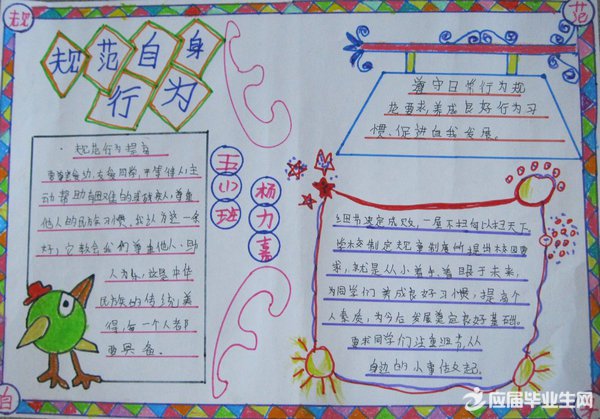 规
范
自
规范自身
行为
规范行为提高
动帮助有困难的残疾人,尊重
他人的民族习惯。我认为这一条
好,它教会我们尊重他人、助
人为乐,这是中华
民族的传统美
得,每一个人都
要具备。
五
小
班
杨
力
嘉
遵守日常行为规
范要求,养成良好行为习
惯,促进自我发展。
细节决定成败,一屋不扫何以扫天下。
学校制定规章制度所提出校园要
求,就是从小着手,着眼于未来,
为同学们养成良好习惯,提高个
人素质,为今后发展奠定良好基础。
要求同学们注重细节,从
身边的小事做起。
应届毕业生网